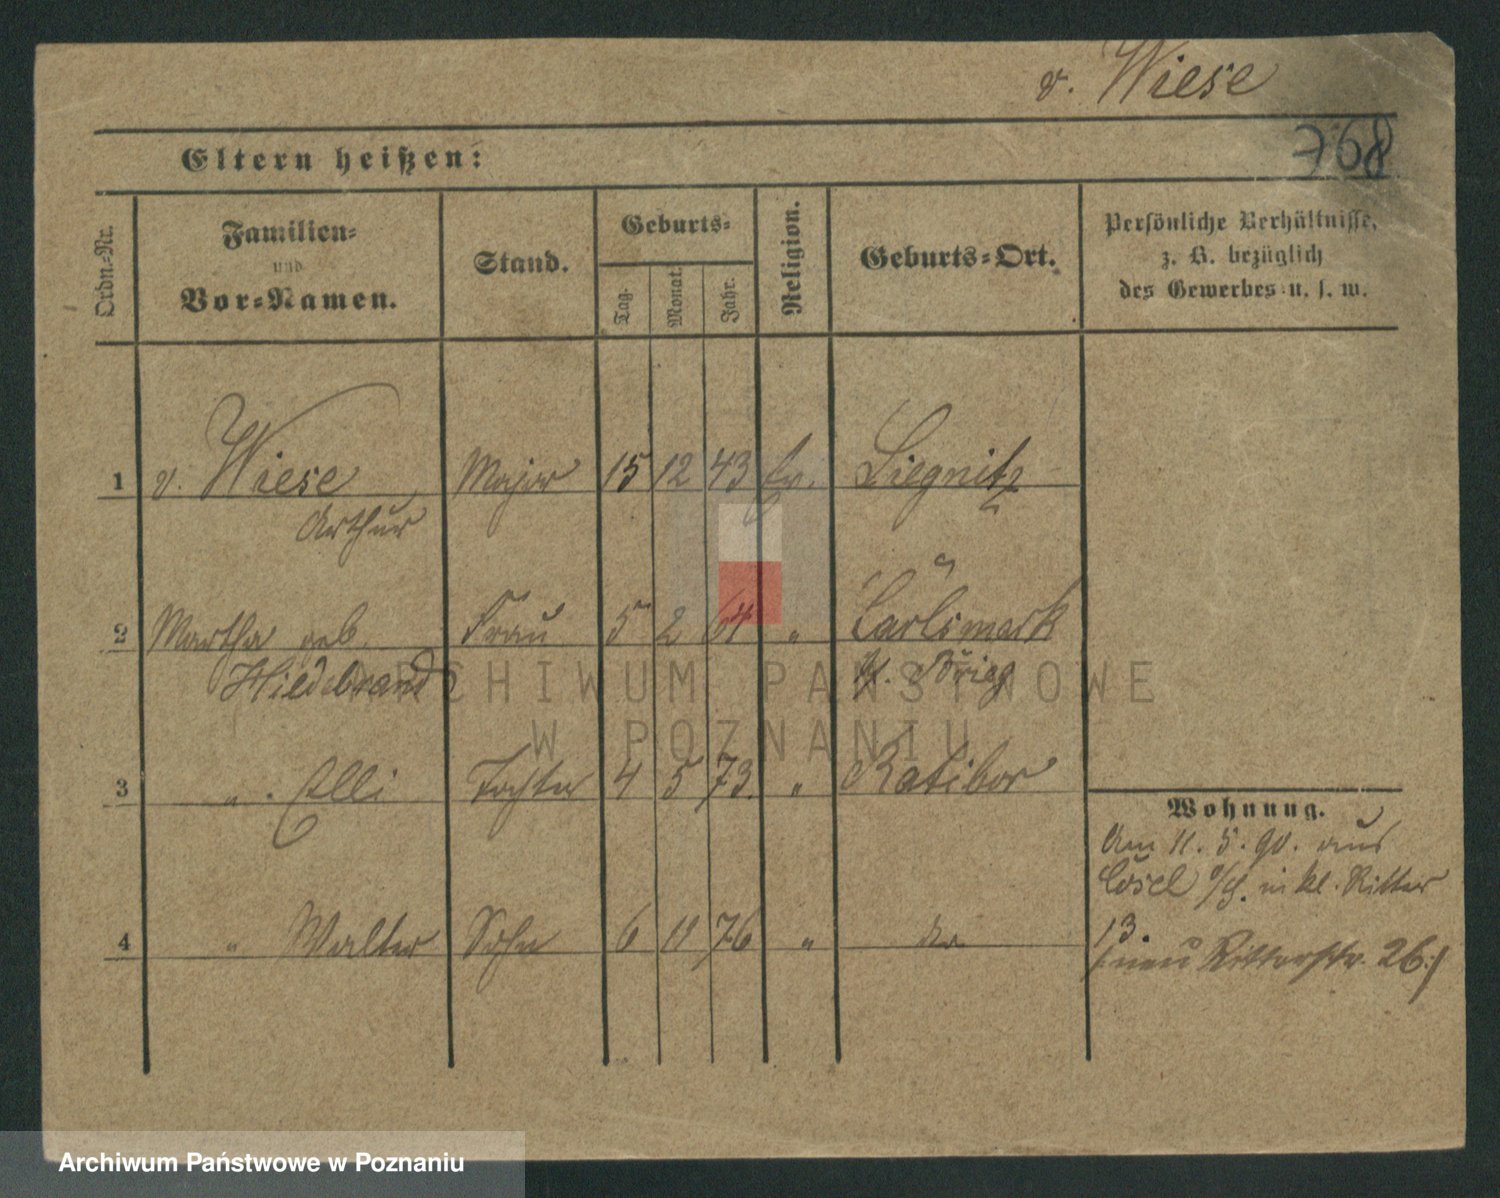 v. Wiese
768
Eltern heißen:
Ordn.-Nr.
Familien-
und
Vor-Namen.
Stand.
Geburts-
Tag.
Monat.
Jahr.
Religion.
Geburts-Ort.
Persönliche Verhältnisse,
z. B. bezüglich
des Gewerbes u. s. w.
1 v. Wiese Major 15 12 43 Ev. Liegnitz
Arthur
2 Martha geb. Frau 5 2 " Carlsmark
Hildebrand Brieg
3 " Elli Tochter 4 5 73. " Ratibor
4 " Walter Sohn 6 11 76 " do
Wohnung.
Am 11. 5. 90. aus
Cosel o/S. in kl. Ritter
13.
(neu Ritterstr. 26.)
ARCHIWUM PAŃSTWOWE
W POZNANIU
Archiwum Państwowe w Poznaniu